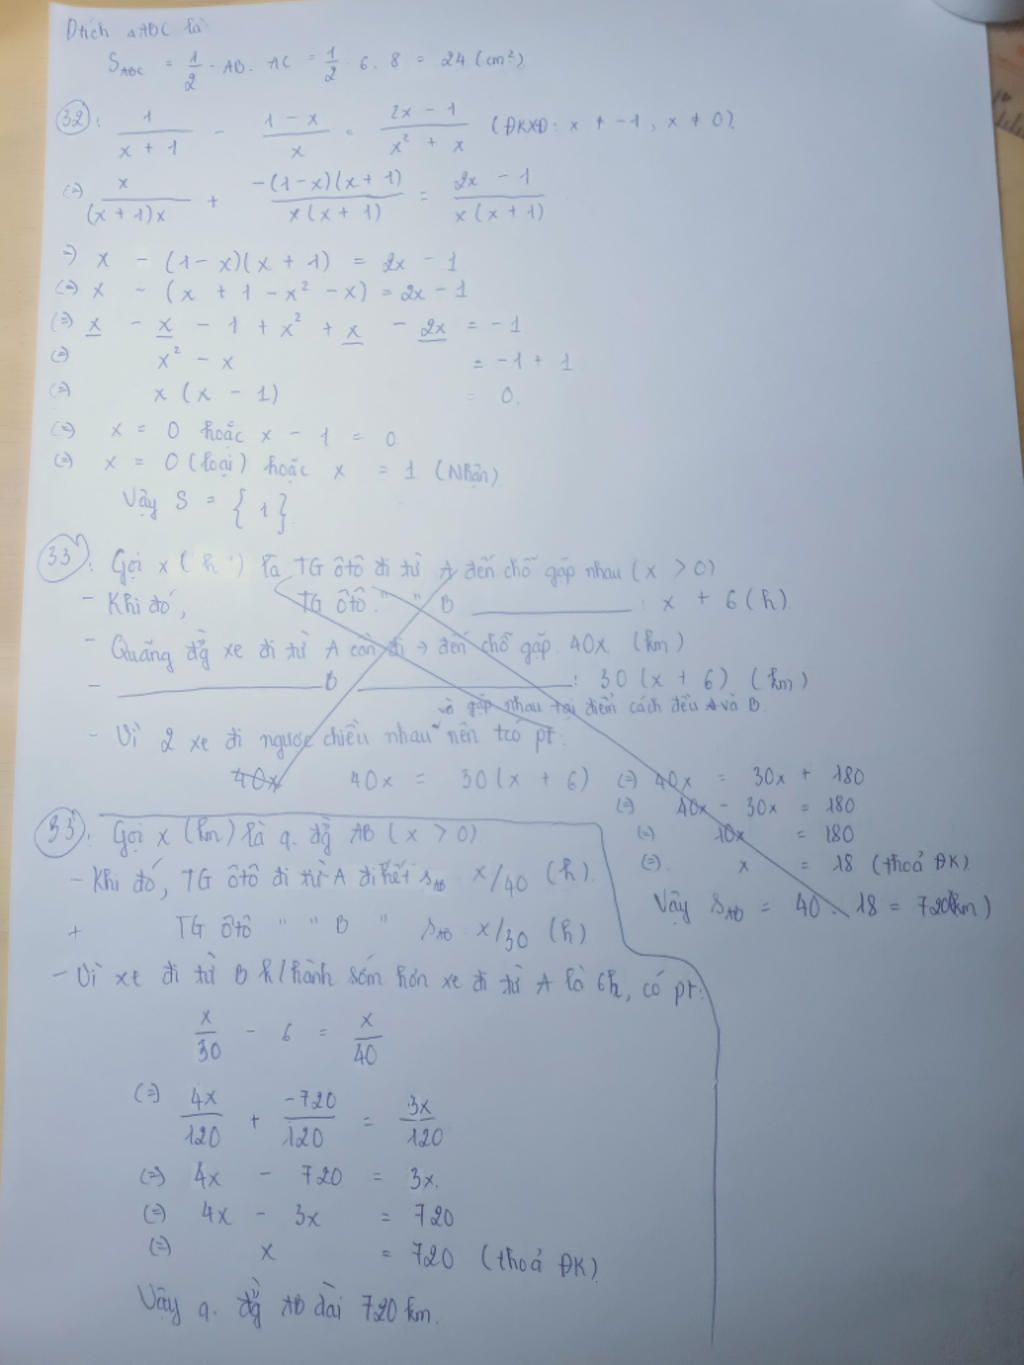 Dtích ΔABC là:
S_ABC = 1/2 . AB. AC = 1/2 . 6. 8 = 24 (cm²)
32: 1/(x + 1) - (1 - x)/x = (2x - 1)/(x² + x) (ĐKXĐ: x ≠ -1, x ≠ 0)
(=) x/((x + 1)x) + (-(1-x)(x + 1))/(x(x + 1)) = (2x - 1)/(x(x + 1))
=) x - (1-x)(x + 1) = 2x - 1
(=) x - (x + 1 - x² - x) = 2x - 1
(=) x - x - 1 + x² + x - 2x = -1
(=) x² - x = -1 + 1
(=) x (x - 1) = 0.
(=) x = 0 hoặc x - 1 = 0
(=) x = 0 (loại) hoặc x = 1 (Nhận)
Vậy S = {1}
33: Gọi x (h) là TG ôtô đi từ A đến chỗ gặp nhau (x > 0)
- Khi đó, TG ôtô " " B ________ : x + 6 (h)
- Quãng đg xe đi từ A cần đi → đến chỗ gặp 40x (km)
- ________ B ________ : 30 (x + 6) (km)
và gặp nhau tại điểm cách đều A và B
- Vì 2 xe đi ngược chiều nhau nên có pt:
40x 40x = 30 (x + 6) (=) 40x = 30x + 180
(=) 40x - 30x = 180
(=) 10x = 180
(=) x = 18 (thoả ĐK)
Vậy S_AB = 40 . 18 = 720 (km)
33: Gọi x (km) là q. đg AB (x > 0)
- Khi đó, TG ôtô đi từ A đi hết S_AB x/40 (h)
+ TG ôtô " " B " S_AB x/30 (h)
- Vì xe đi từ B k/hành sớm hơn xe đi từ A là 6h, có pt:
x/30 - 6 = x/40
(=) 4x/120 + -720/120 = 3x/120
(=) 4x - 720 = 3x.
(=) 4x - 3x = 720
(=) x = 720 (thoả ĐK)
Vậy q. đg AB dài 720 km.